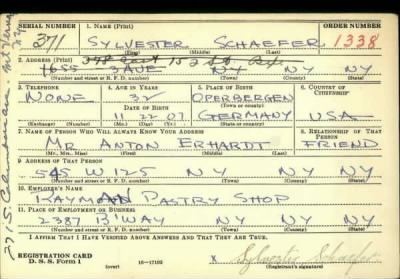 SERIAL NUMBER 1. NAME (Print) ORDER NUMBER
371 SYLVESTER SCHAEFER 1338
(First) (Middle) (Last)
2. ADDRESS (Print)
1655 3 AVE NY NY NY
(Number and street or R. F. D. number) (Town) (County) (State)
3. TELEPHONE 4. AGE IN YEARS 5. PLACE OF BIRTH 6. COUNTRY OF CITIZENSHIP
NONE 32 OPERBERGEN
DATE OF BIRTH (Town or county)
11 22 07 GERMANY USA
(Exchange) (Number) (Mo.) (Day) (Yr.) (State or country)
7. NAME OF PERSON WHO WILL ALWAYS KNOW YOUR ADDRESS 8. RELATIONSHIP OF THAT PERSON
MR ANTON ERHARDT FRIEND
(Mr., Mrs., Miss) (First) (Middle) (Last)
9. ADDRESS OF THAT PERSON
545 W 125 NY NY NY
(Number and street or R. F. D. number) (Town) (County) (State)
10. EMPLOYER'S NAME
RAYMAN PASTRY SHOP
11. PLACE OF EMPLOYMENT OR BUSINESS
2387 B'WAY NY NY NY
(Number and street or R. F. D. number) (Town) (County) (State)
I AFFIRM THAT I HAVE VERIFIED ABOVE ANSWERS AND THAT THEY ARE TRUE.
REGISTRATION CARD
D. S. S. Form 1 (over) 16—17105 X Sylvester Schaefer
(Registrant's signature)